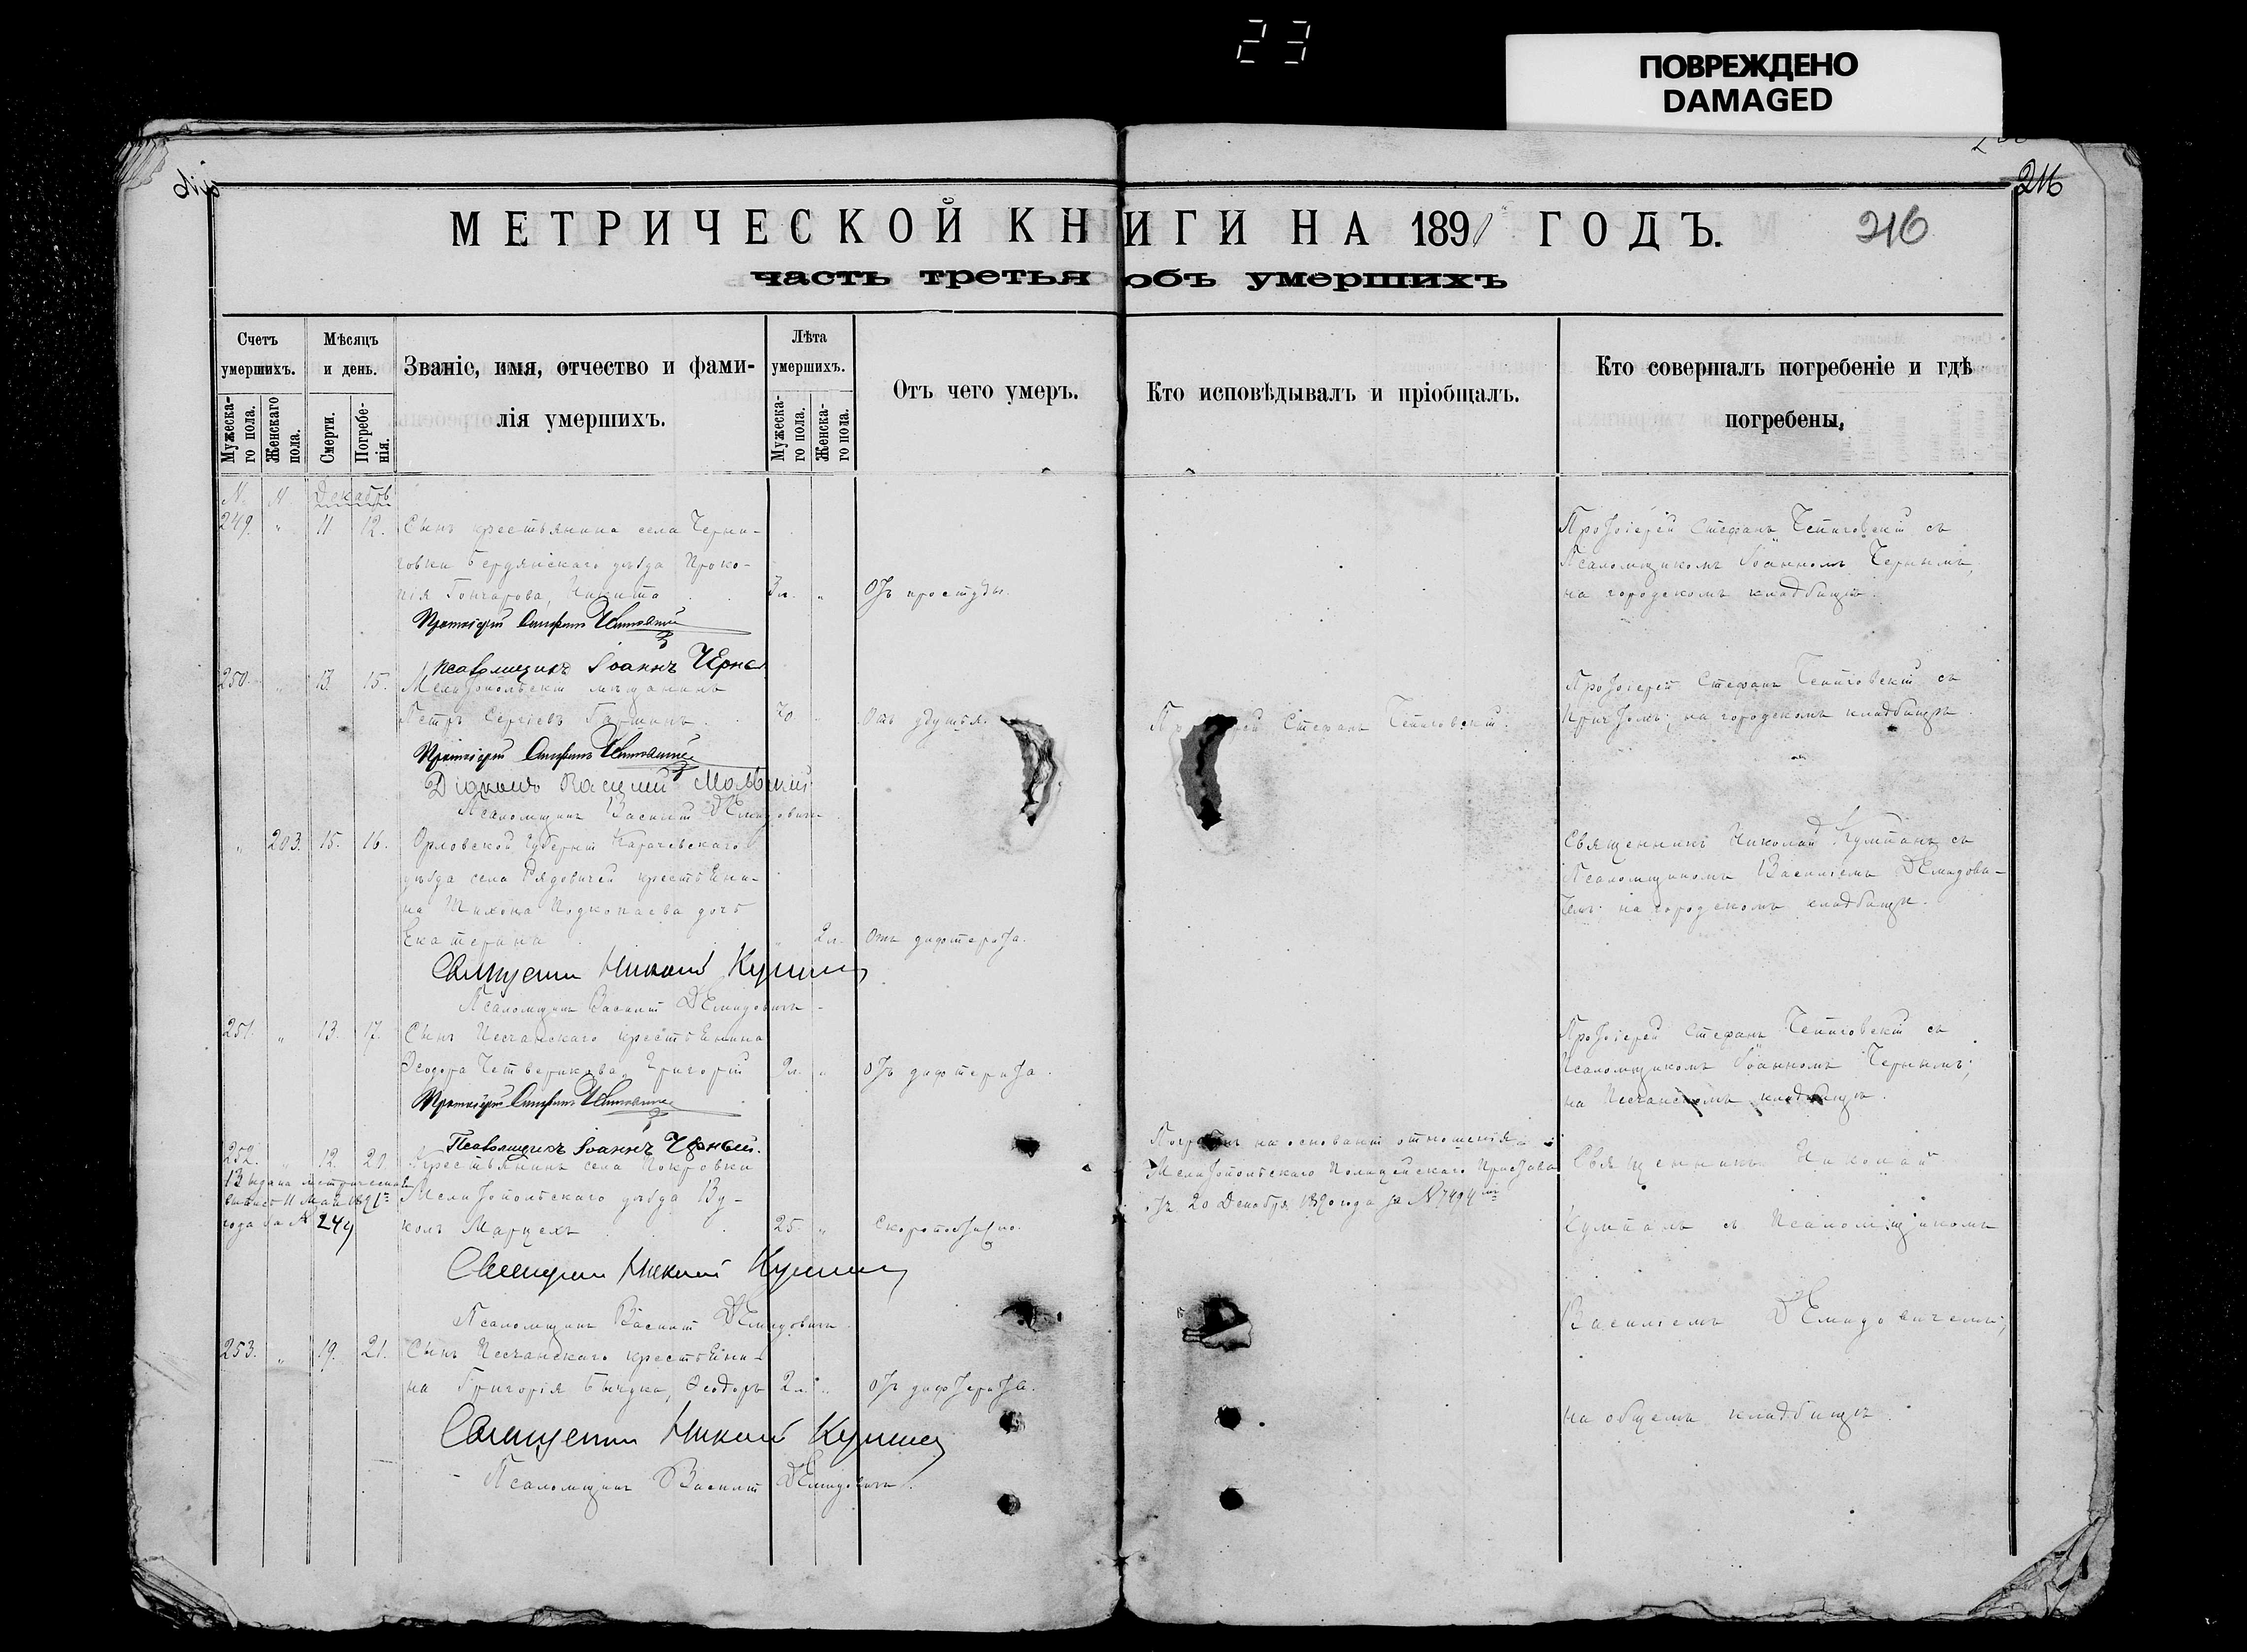 23
ПОВРЕЖДЕНО
DAMAGED
216
МЕТРИЧЕСКОЙ КНИГИ НА 1890 ГОДЪ.
216
часть третья объ умершихъ
Счетъ умершихъ.
Мужеска-го пола.
Женскаго пола.
Мѣсяцъ и день.
Смерти.
Погребе-нія.
Званіе, имя, отчество и фами-
лія умершихъ.
Лѣта умершихъ.
Мужеска-го пола.
Женска-го пола.
Отъ чего умеръ.
Кто исповѣдывалъ и пріобщалъ.
Кто совершалъ погребеніе и гдѣ
погребены.
Декабрь
249. " 11 12. Сынъ крестьянина села Черни-
говки Бердянскаго уѣзда Проко-
пія Гончарова, Никита 3 л. " Отъ простуды.
Протоіерей Стефанъ
Псаломщикъ Іоаннъ Черный
Протоіерей Стефанъ съ
Псаломщикомъ Іоанномъ Чернымъ,
на городскомъ кладбищѣ.
250. " 13. 15. Мелитопольскій мѣщанинъ
Петръ Сергіевъ 70 Отъ удушья.
Протоіерей Стефанъ
Діаконъ Василій
Псаломщикъ Василій Демидовичъ
Стефанъ
Протоіерей Стефанъ съ
причтомъ; на городскомъ кладбищѣ.
" 203. 15. 16. Орловской губерніи Карачевскаго
уѣзда села Рядовичей крестьяни-
на Тихона Подкопаева дочь
Екатерина " 2 л. Отъ дифтерита.
Священникъ Николай
Псаломщикъ Василій Демидовичъ
Священникъ Николай съ
Псаломщикомъ Василіемъ Демидови-
чемъ; на городскомъ кладбищѣ.
251. " 13. 17. Сынъ Песчанскаго крестьянина
Ѳеодора Четверикова, Григорій 2 л. " Отъ дифтерита.
Протоіерей Стефанъ
Псаломщикъ Іоаннъ Черный.
Протоіерей Стефанъ съ
Псаломщикомъ Іоанномъ Чернымъ;
на Песчанскомъ кладбищѣ.
252. " 12. 20. Крестьянинъ села Покровки
Мелитопольскаго уѣзда Ву-
колъ 25. " Скоропостижно.
Выдана метрическая
выпись 11 Мая 1891
года за № 249
Священникъ Николай
Псаломщикъ Василій Демидовичъ
Погребенъ на основаніи отношенія
Мелитопольскаго Полицейскаго Пристава
отъ 20 Декабря 1890 года за № 7494
Священникъ Николай
съ Псаломщикомъ
Василіемъ Демидовичемъ;
на общемъ кладбищѣ.
253. " 19. 21. Сынъ Песчанскаго крестьяни-
на Григорія Бычука, Ѳеодоръ 2 л. " Отъ дифтерита.
Священникъ Николай
Псаломщикъ Василій Демидовичъ.